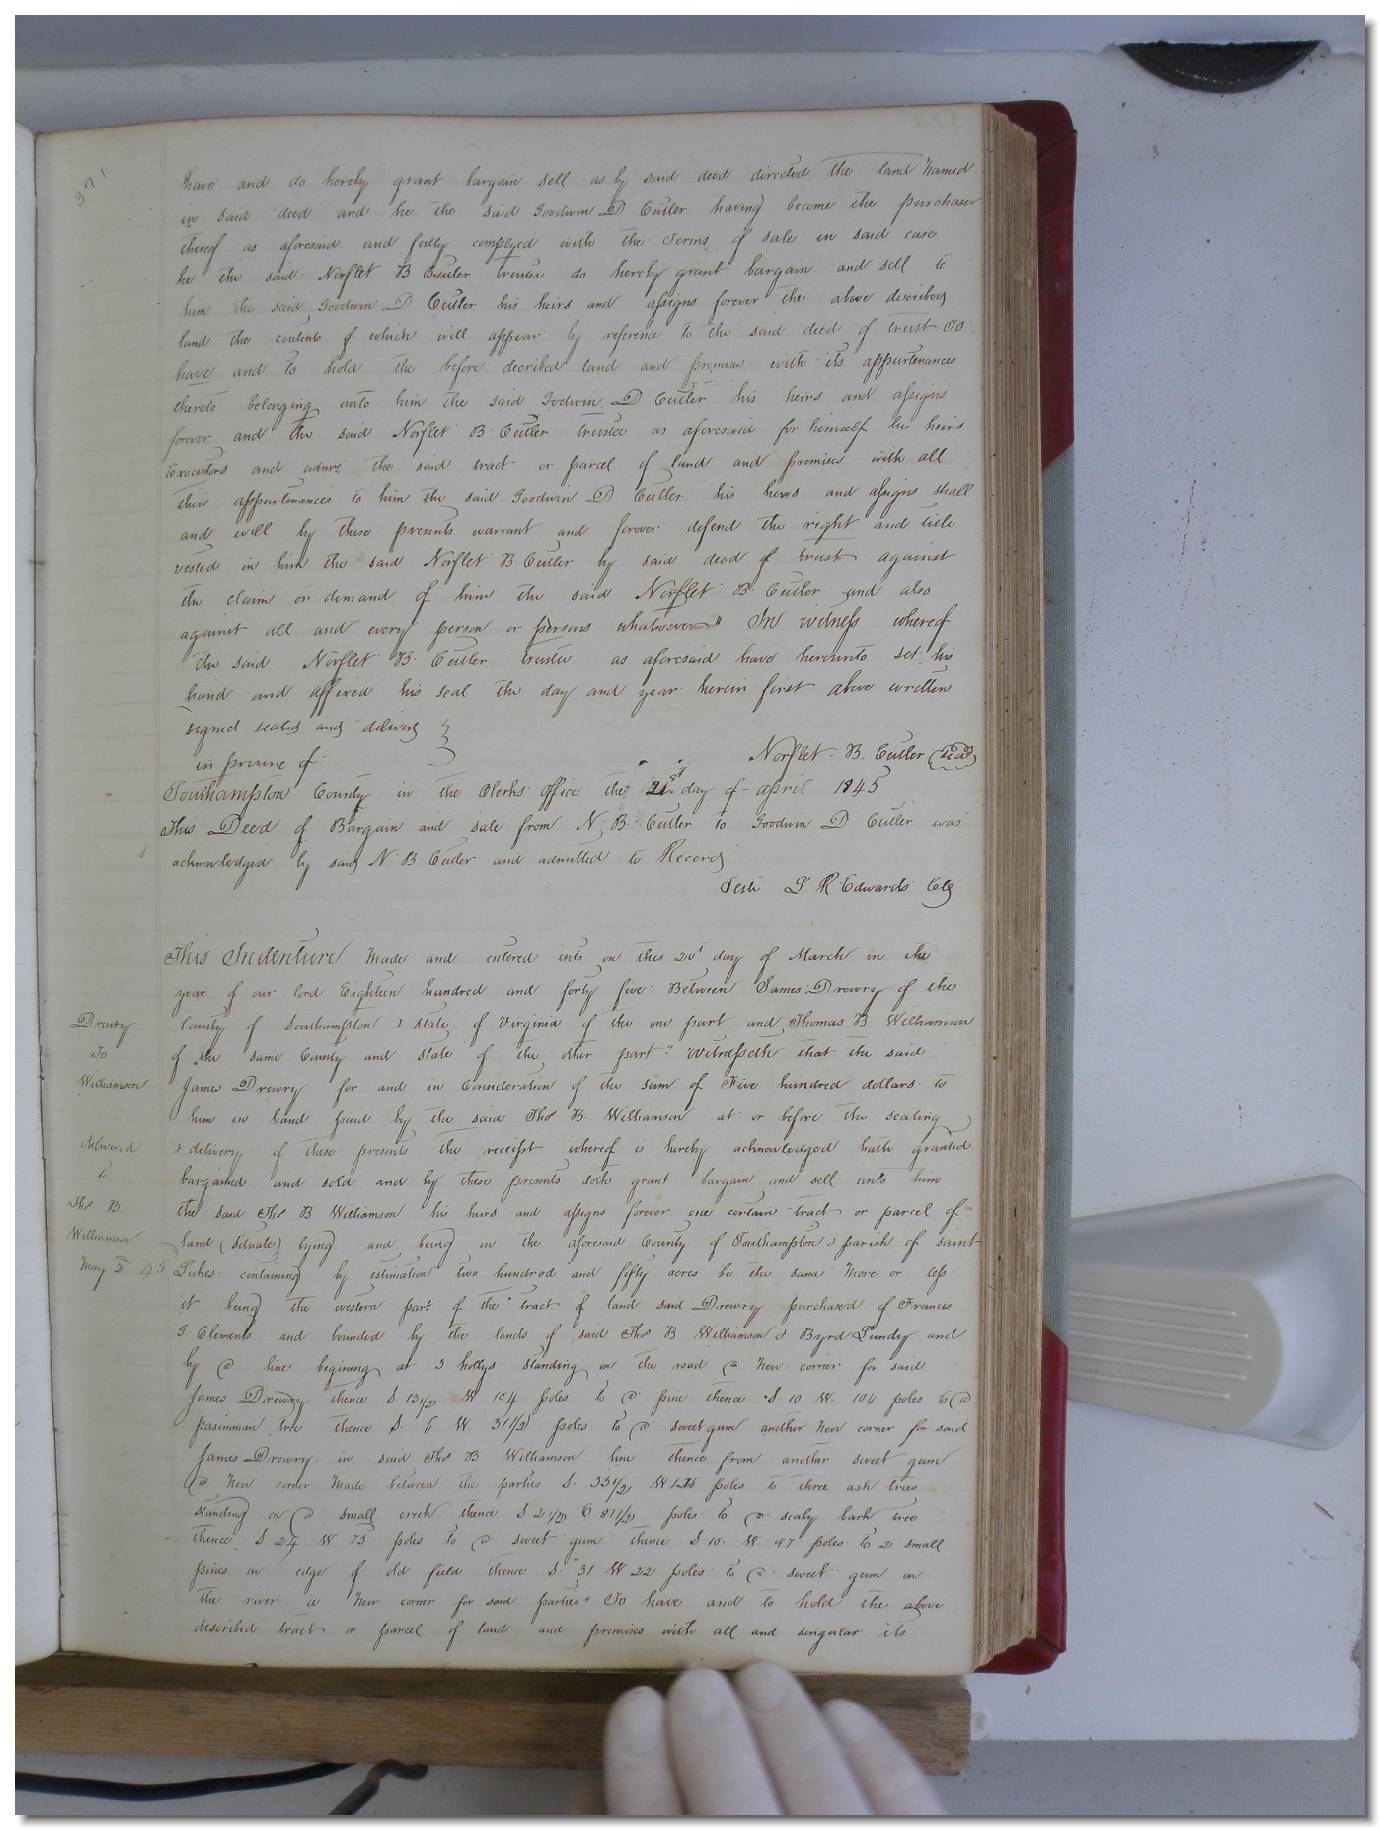 371
have and do hereby grant bargain sell as by said deed directed the land named
in said deed and he the said Goodwin D Cutler having become the purchaser
thereof as aforesaid and fully complyed with the Terms of sale in said case
he the said Norflet B Cutler trustee do hereby grant bargain and sell to
him the said Goodwin D Cutler his heirs and assigns forever the above described
land the contents of which will appear by reference to the said deed of trust To
have and to hold the before decribed land and premises with its appurtenances
thereto belonging unto him the said Godwin D Cutler his heirs and assigns
forever and the said Norflet B. Cutler trustee as aforesaid for himself his heirs
Executors and admrs the said tract or parcel of land and premises with all
their appurtenances to him the said Goodwin D Cutler his heirs and assigns shall
and will by these presents warrant and forever defend the right and title
vested in him the said Norflet B. Cutler by said deed of trust against
the claim or demand of him the said Norflet B. Cutler and also
against all and every person or persons whatsoever" In witness whereof
the said Norflet B. Cutler trustee as aforesaid have hereunto set his
hand and affixed his seal the day and year herein first above written
signed sealed and delivered
in presence of
Norflet B. Cutler (Seal)
Southampton County in the Clerks office the 21st day of april 1845
This Deed of Bargain and sale from N. B. Cutler to Goodwin D Cutler was
acknowledged by said N B Cutler and admitted to Record
Teste L R Edwards Clk
This Indenture Made and entered into on this day of March in the
year of our lord Eighteen hundred and forty five Between James Drewry of the
Drewry
To
Williamson
County of Southampton & state of Virginia of the one part and Thomas B Williamson
of the same County and State of the other part" witnesseth that the said
James Drewry for and in Consideration of the sum of Five hundred dollars to
him in hand paid by the said Thos B. Williamson at or before the sealing
delivered
to
Thos B
Williamson
May 45
& delivery of these presents the receipt whereof is hereby acknowledged hath granted
bargained and sold and by these presents doth grant bargain and sell unto him
the said Thos B Williamson his heirs and assigns forever one certain tract or parcel of
land (situate) lying and being in the aforesaid County of Southampton & parish of saint
Lukes containing by estimation two hundred and fifty acres be the same More or less
it being the western part of the tract of land said Drewry purchased of Francis
Clements and bounded by the lands of said Thos B Williamson & Byrd Gundy and
by a line begining at 3 hollys standing on the road a New corner for said
James Drewry thence S. 13 1/2 W 104 poles to a pine thence S 10 W. 104 poles to a
pasimman tree thence S. W. 31 1/2 poles to a sweet gum another New corner for said
James Drewry in said Thos B Williamson line thence from another sweet gum
a New corner Made between the parties S. 33 1/2 W poles to three ash trees
standing on a small creek thence S 21 1/2 E 81 1/2 poles to a scaly bark tree
thence S 24 W 73 poles to a sweet gum thence S 10. W. 97 poles to 2 small
pines on edge of old field thence S. 31 W 22 poles to a sweet gum on
the river a New corner for said parties" To have and to hold the above
described tract or parcel of land and premises with all and singular its